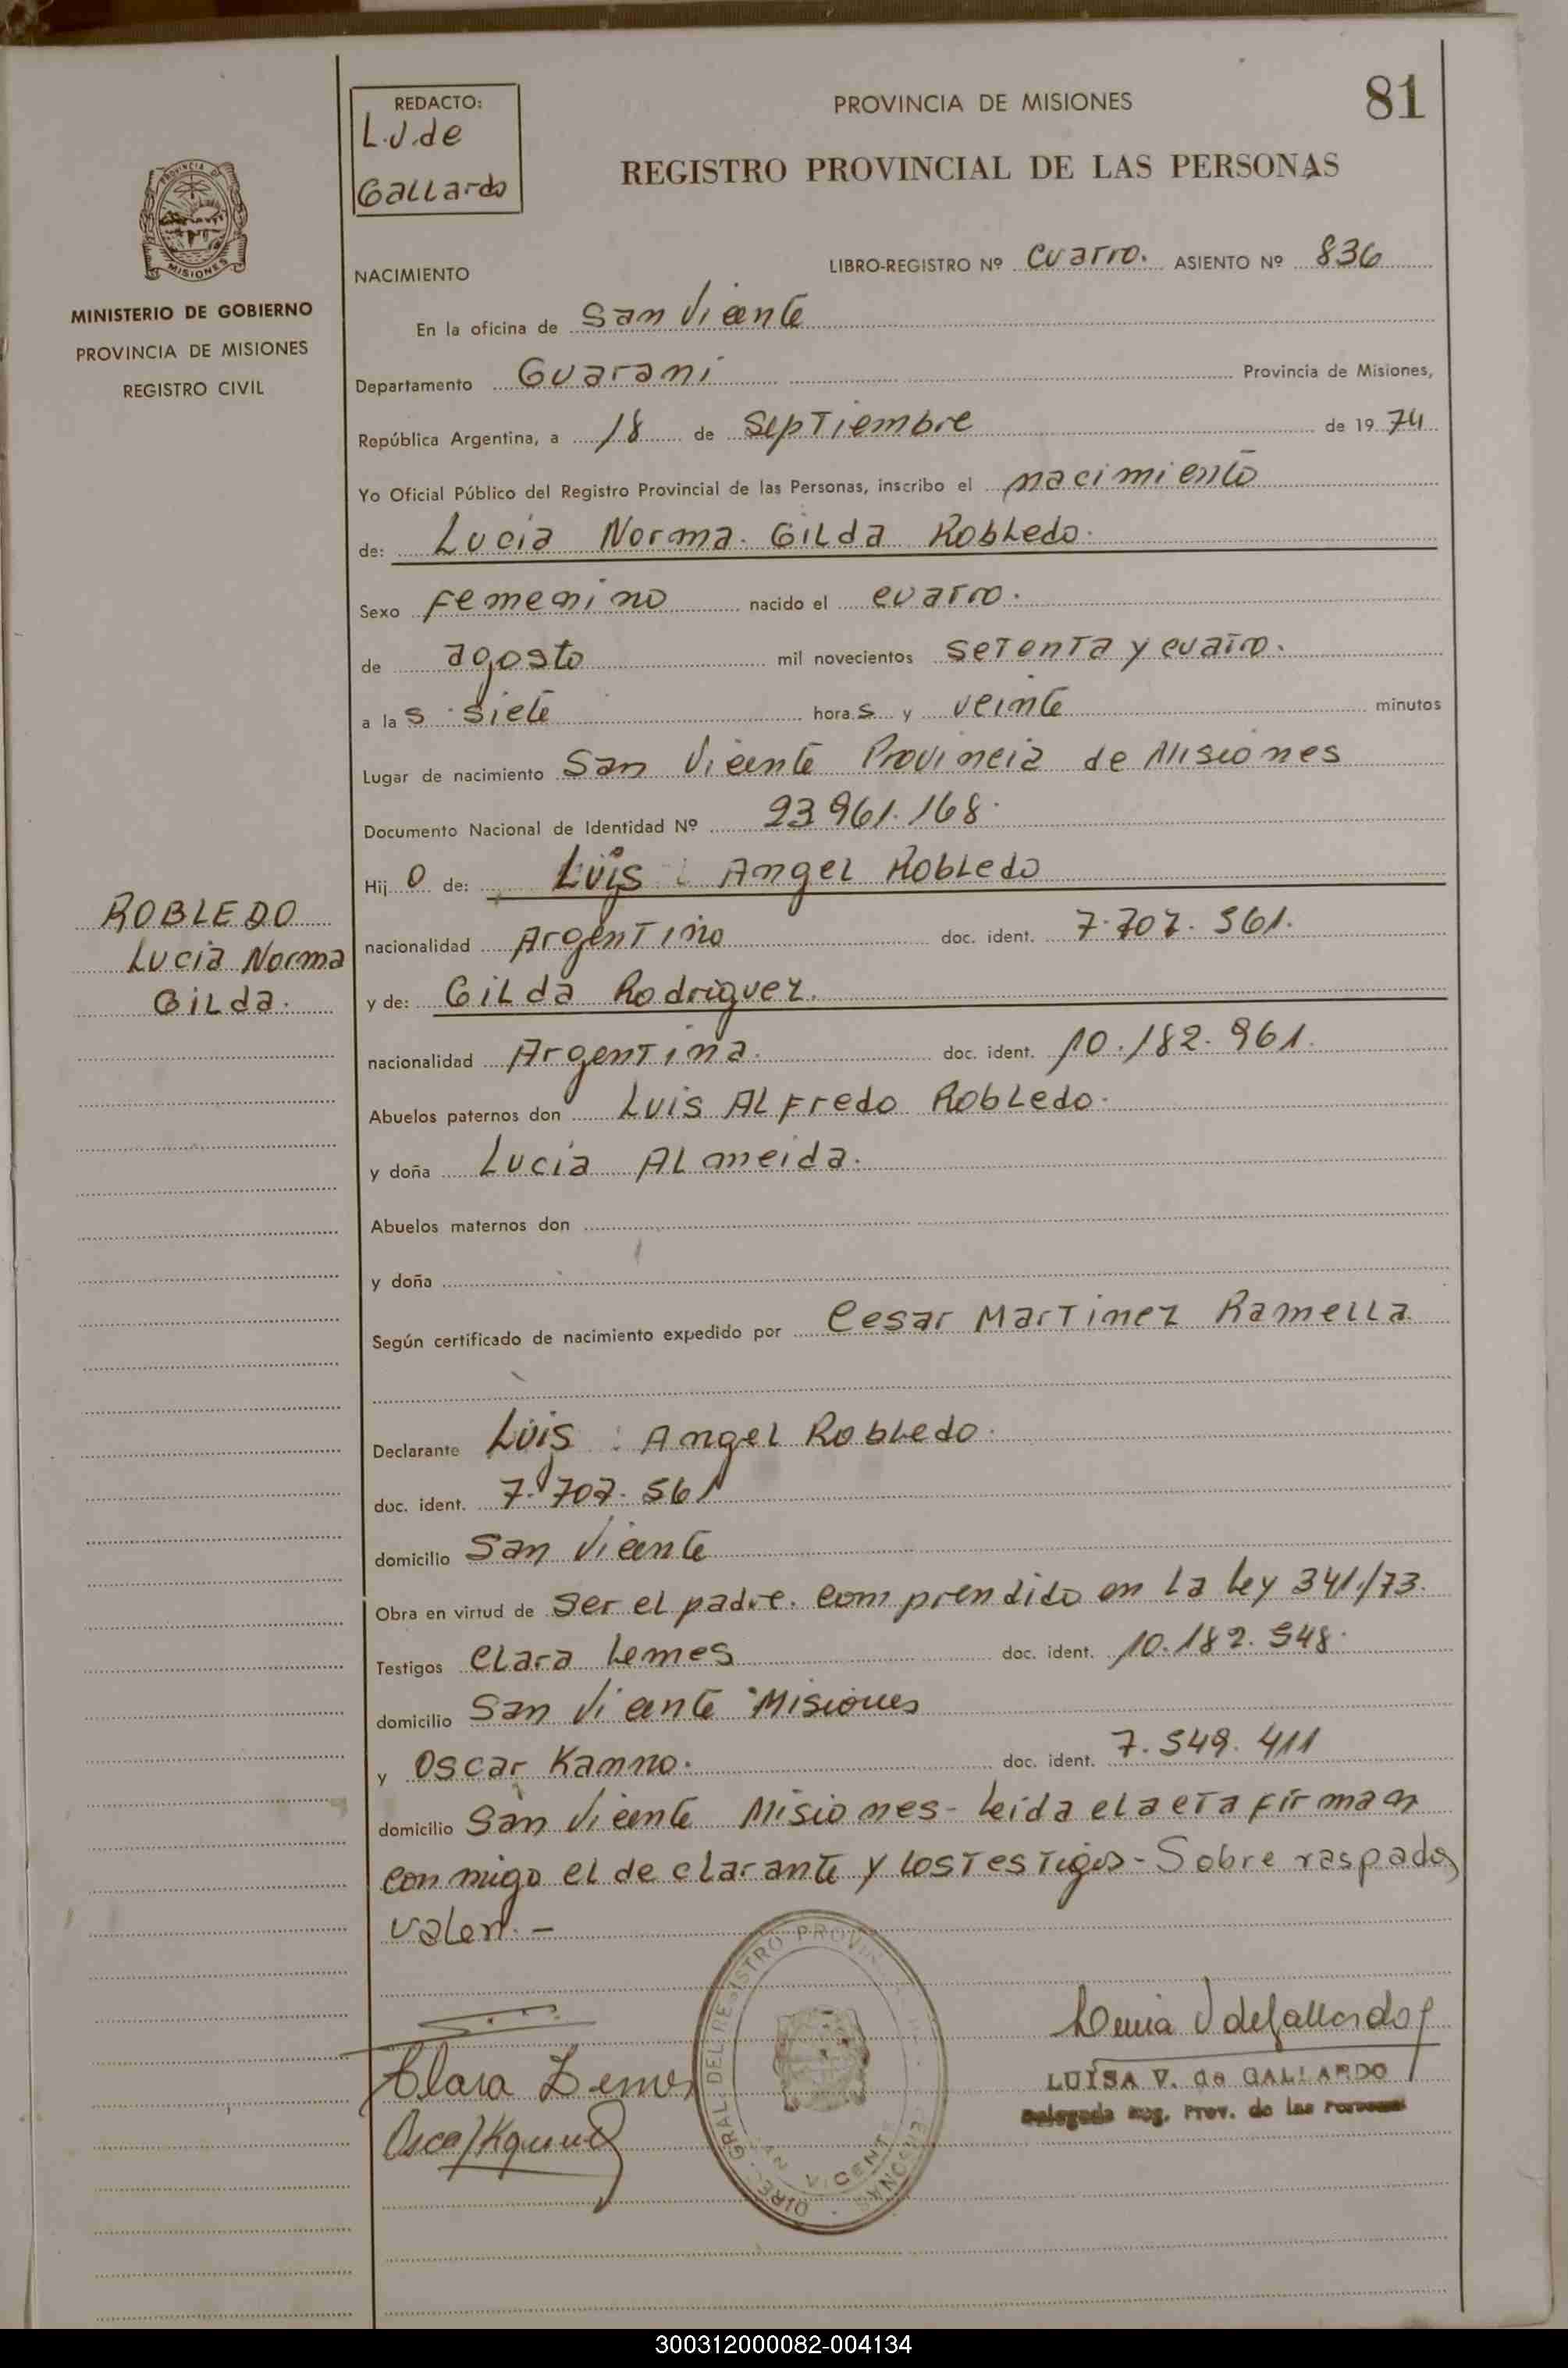 REDACTO:
L.V. de
Gallardo
PROVINCIA DE MISIONES
81
REGISTRO PROVINCIAL DE LAS PERSONAS
PROVINCIA DE
MISIONES
MINISTERIO DE GOBIERNO
PROVINCIA DE MISIONES
REGISTRO CIVIL
NACIMIENTO
LIBRO-REGISTRO Nº cuatro. ASIENTO Nº 836
En la oficina de San Vicente
Departamento Guarani Provincia de Misiones,
República Argentina, a 18 de Septiembre de 1974
Yo Oficial Público del Registro Provincial de las Personas, inscribo el nacimiento
de: Lucia Norma. Gilda Robledo.
Sexo femenino nacido el cuatro.
de agosto mil novecientos setenta y cuatro.
a las siete horas y veinte minutos
Lugar de nacimiento San Vicente Provincia de Misiones
Documento Nacional de Identidad Nº 23 961.168.
Hijo de: Luis Angel Robledo
nacionalidad Argentino doc. ident. 7.707.561.
y de: Gilda Rodriguez.
nacionalidad Argentina. doc. ident. 10.182.961.
Abuelos paternos don Luis Alfredo Robledo.
y doña Lucia Almeida.
Abuelos maternos don
y doña
Según certificado de nacimiento expedido por Cesar Martinez Ramella.
Declarante Luis Angel Robledo.
doc. ident. 7.707.561
domicilio San Vicente
Obra en virtud de ser el padre. comprendido en la ley 341/73.
Testigos Clara Lemes doc. ident. 10.182.548.
domicilio San Vicente Misiones
y Oscar Kanno. doc. ident. 7.549.411
domicilio San Vicente Misiones - leida el acta firman
conmigo el declarante y los testigos - Sobre raspados
valen. -
ROBLEDO
Lucia Norma
Gilda.
Clara Lemes
DIREC. GRAL. DEL REGISTRO PROVIN
PERSONAS
VICENTE
LUISA V. de GALLARDO
Delegada Reg. Prov. de las Personas
300312000082-004134